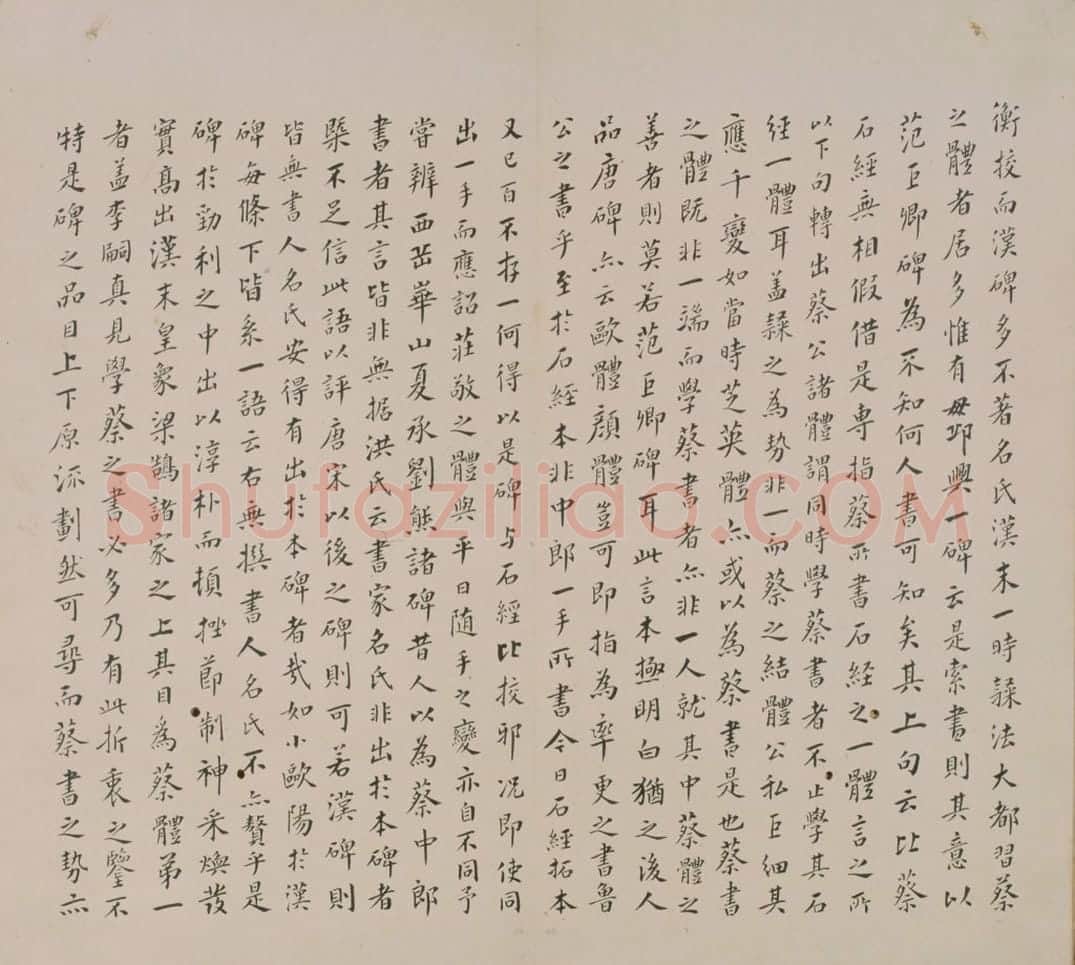 衡挍而漢碑多不著名氏漢末一時隸法大都習蔡
之體者居多惟有毌邱興一碑云是索書則其意以
范巨卿碑為不知何人書可知矣其上句云比蔡
石經無相假借是専指蔡所書石経之一體言之所
以下句轉出蔡公諸體謂同時學蔡書者不止學其石
經一體耳盖隸之為勢非一而蔡之結體公私巨細其
應千變如當時芝英體亦或以為蔡書是也蔡書
之體既非一端而學蔡書者亦非一人就其中蔡體之
善者則莫若范巨卿碑耳此言本極明白猶之後人
品唐碑亦云歐體顔體豈可即指為率更之書魯
公之書乎至於石經本非中郎一手所書今日石經拓本
又已百不存一何得以是碑与石經比挍邪况即使同
出一手而應詔莊敬之體與平日隨手之變亦自不同予
嘗辨西嶽華山夏承劉熊諸碑昔人以為蔡中郎
書者其言皆非無据洪氏云書家名氏非出於本碑者
槩不足信此語以評唐宋以後之碑則可若漢碑則
皆無書人名氏安得有出於本碑者哉如小歐陽於漢
碑每條下皆系一語云右無撰書人名氏不亦贅乎是
碑於勁利之中出以淳朴而頓挫節制神采煥發
實髙出漢末皇象梁鵠諸家之上其目為蔡體第一
者盖李嗣真見學蔡之書必多乃有此折衷之鑒不
特是碑之品目上下原流劃然可尋而蔡書之勢亦
Shufaziliao.COM